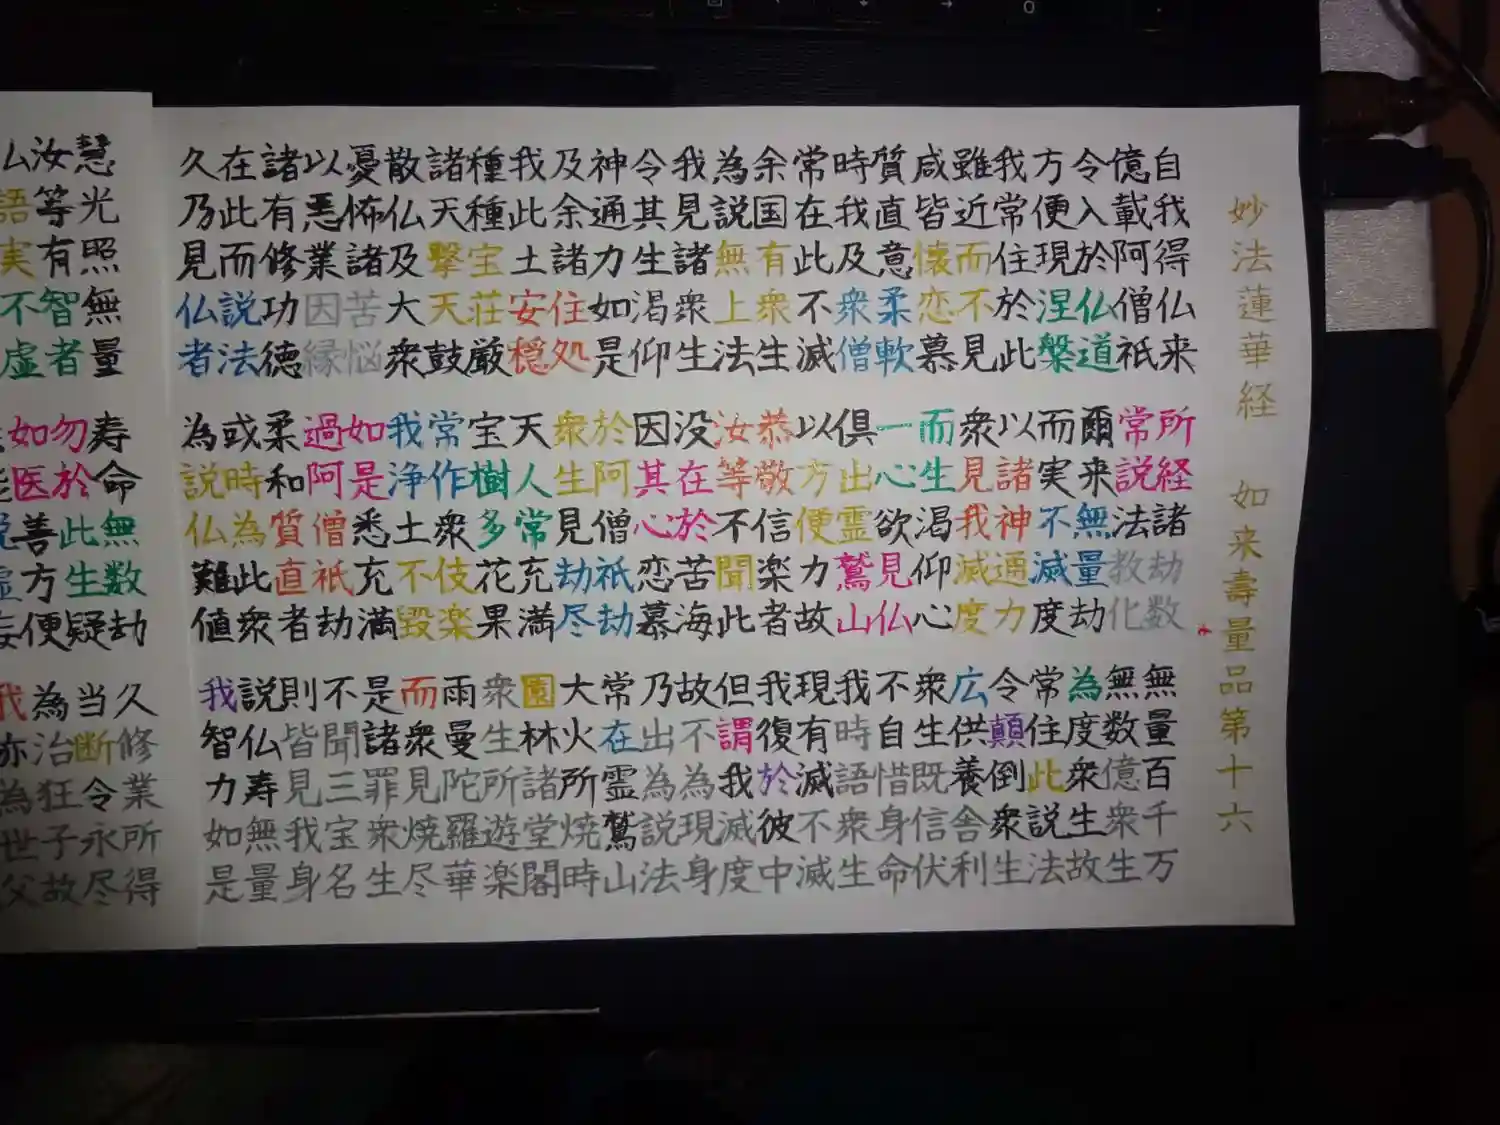 妙法蓮華経 如来壽量品第十六
自我得仏来 所経諸劫数 無量百千万
億載阿僧祇 常説法教化 無数億衆生
令入於仏道 爾来無量劫 為度衆生故
方便現涅槃 而実不滅度 常住此説法
我常住於此 以諸神通力 令顛倒衆生
雖近而不見 衆見我滅度 広供養舎利
咸皆懐恋慕 而生渇仰心 衆生既信伏
質直意柔軟 一心欲見仏 不自惜身命
時我及衆僧 倶出霊鷲山 我時語衆生
常在此不滅 以方便力故 現有滅不滅
余国有衆生 恭敬信者 我復於彼中
為説無上法 汝等不聞此 但謂我滅度
我見諸衆生 没在於苦海 故不為現身
令其生渇仰 因其心恋慕 乃出為説法
神通力如是 於阿僧祇劫 常在霊鷲山
及余諸住処 衆生見劫尽 大火所焼時
我此土安穏 天人常充満 園林諸堂閣
種種宝荘厳 宝樹多花果 衆生所遊楽
諸天撃天鼓 常作衆伎楽 雨曼陀羅華
散仏及大衆 我浄土不毀 而衆見焼尽
憂怖諸苦悩 如是悉充満 是諸罪衆生
以悪業因縁 過阿僧祇劫 不聞三宝名
諸有修功徳 柔和質直者 則皆見我身
在此而説法 或時為此衆 説仏寿無量
久乃見仏者 為説仏難値 我智力如是
慧光照無量 寿命無数劫 久修業所得
汝等有智者 勿於此生疑 当断令永尽
仏語実不虚 如医善方便 為治狂子故
我亦為世父